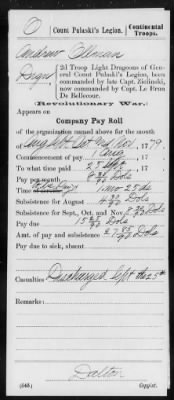 O | Count Pulaski's Legion. | Continental Troops.
Andrew Ollman
2d Troop Light Dragoons of General Count Pulaski's Legion, been commanded by late Capt. Zielinski, now commanded by Capt. Le Brun De Bellecour.
(Revolutionary War.)
Appears on
Company Pay Roll
of the organization named above for the month
of Aug Sept Oct and Nov, 1779.
Commencement of pay 1 Aug, 17
To what time paid 25 Sept, 17
Pay per month 8 Dols
Time 1 mo 25 ds
Subsistence for August Dols
Subsistence for Sept., Oct. and Nov. Dols
Pay due 15 Dols
Amt. of pay and subsistence Dols
Pay due to sick, absent
Casualties Discharged Sept the 25th
Remarks:
Dalton
(648) Copyist.